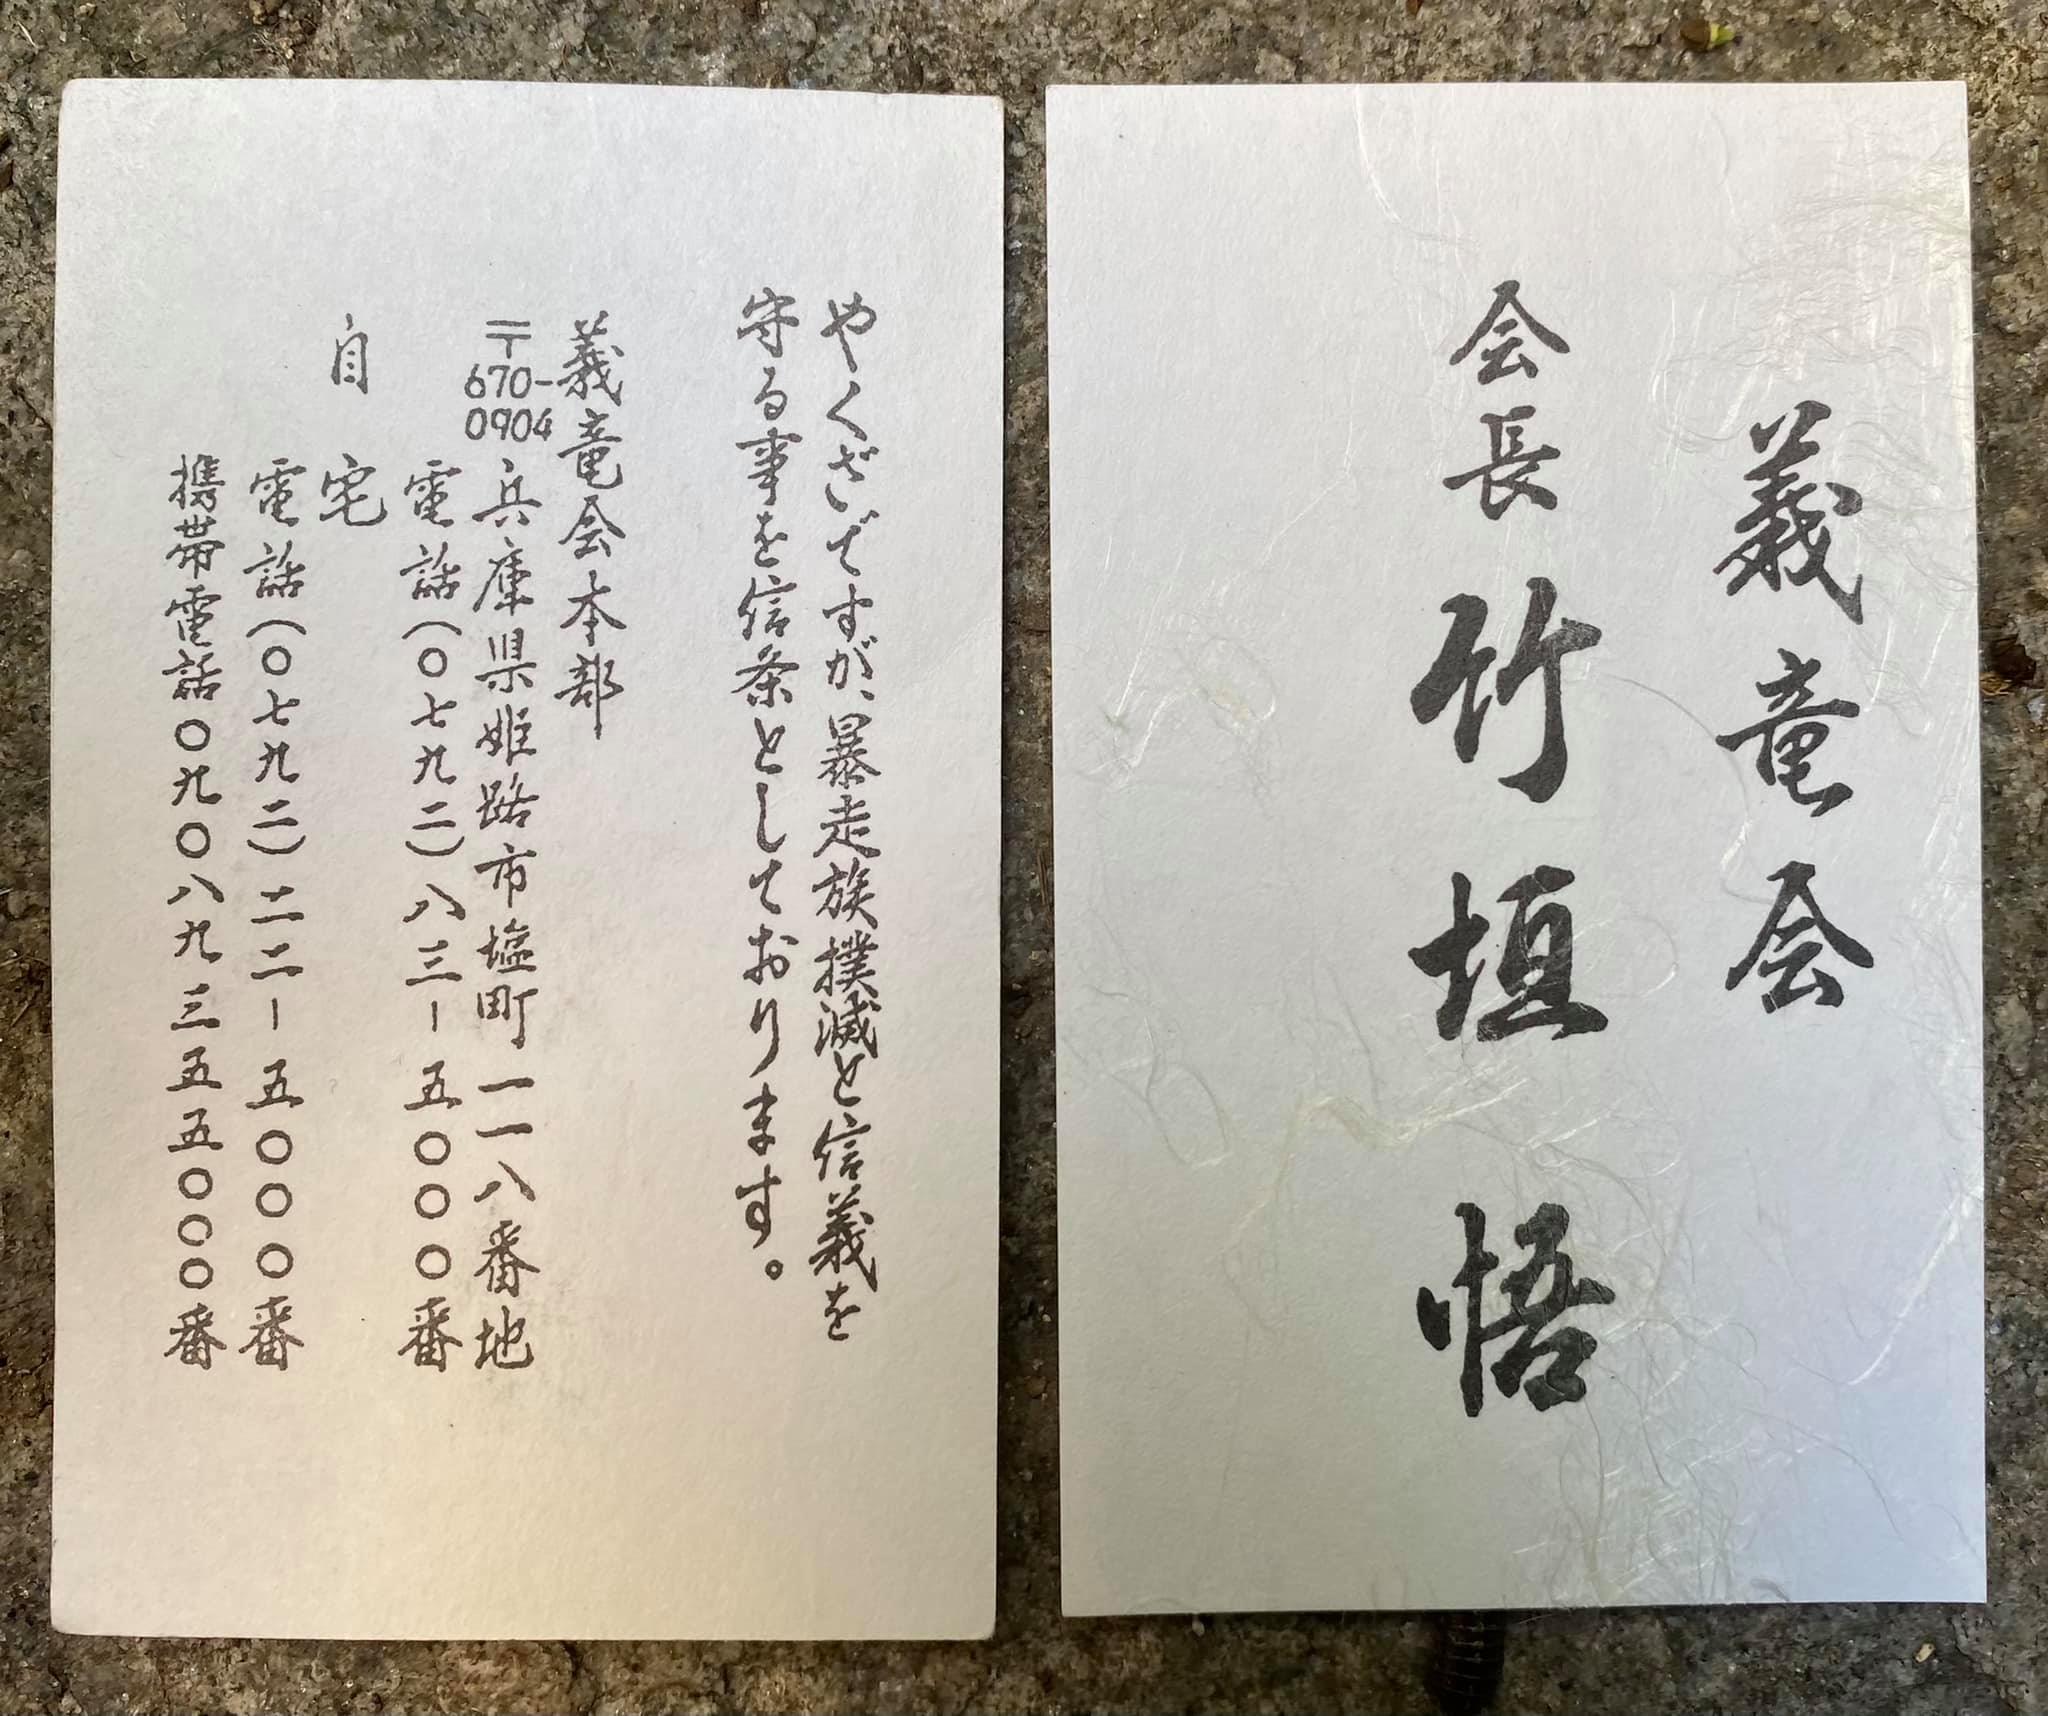 義竜会
会長 竹垣 悟
やくざですが、暴走族撲滅と信義を
守る事を信条としております。
義竜会本部
〒670-0904 兵庫県姫路市塩町一一八番地
電話(〇七九二)八三-五〇〇〇番
自宅
電話(〇七九二)二二-五〇〇〇番
携帯電話〇九〇八九三五五〇〇〇番